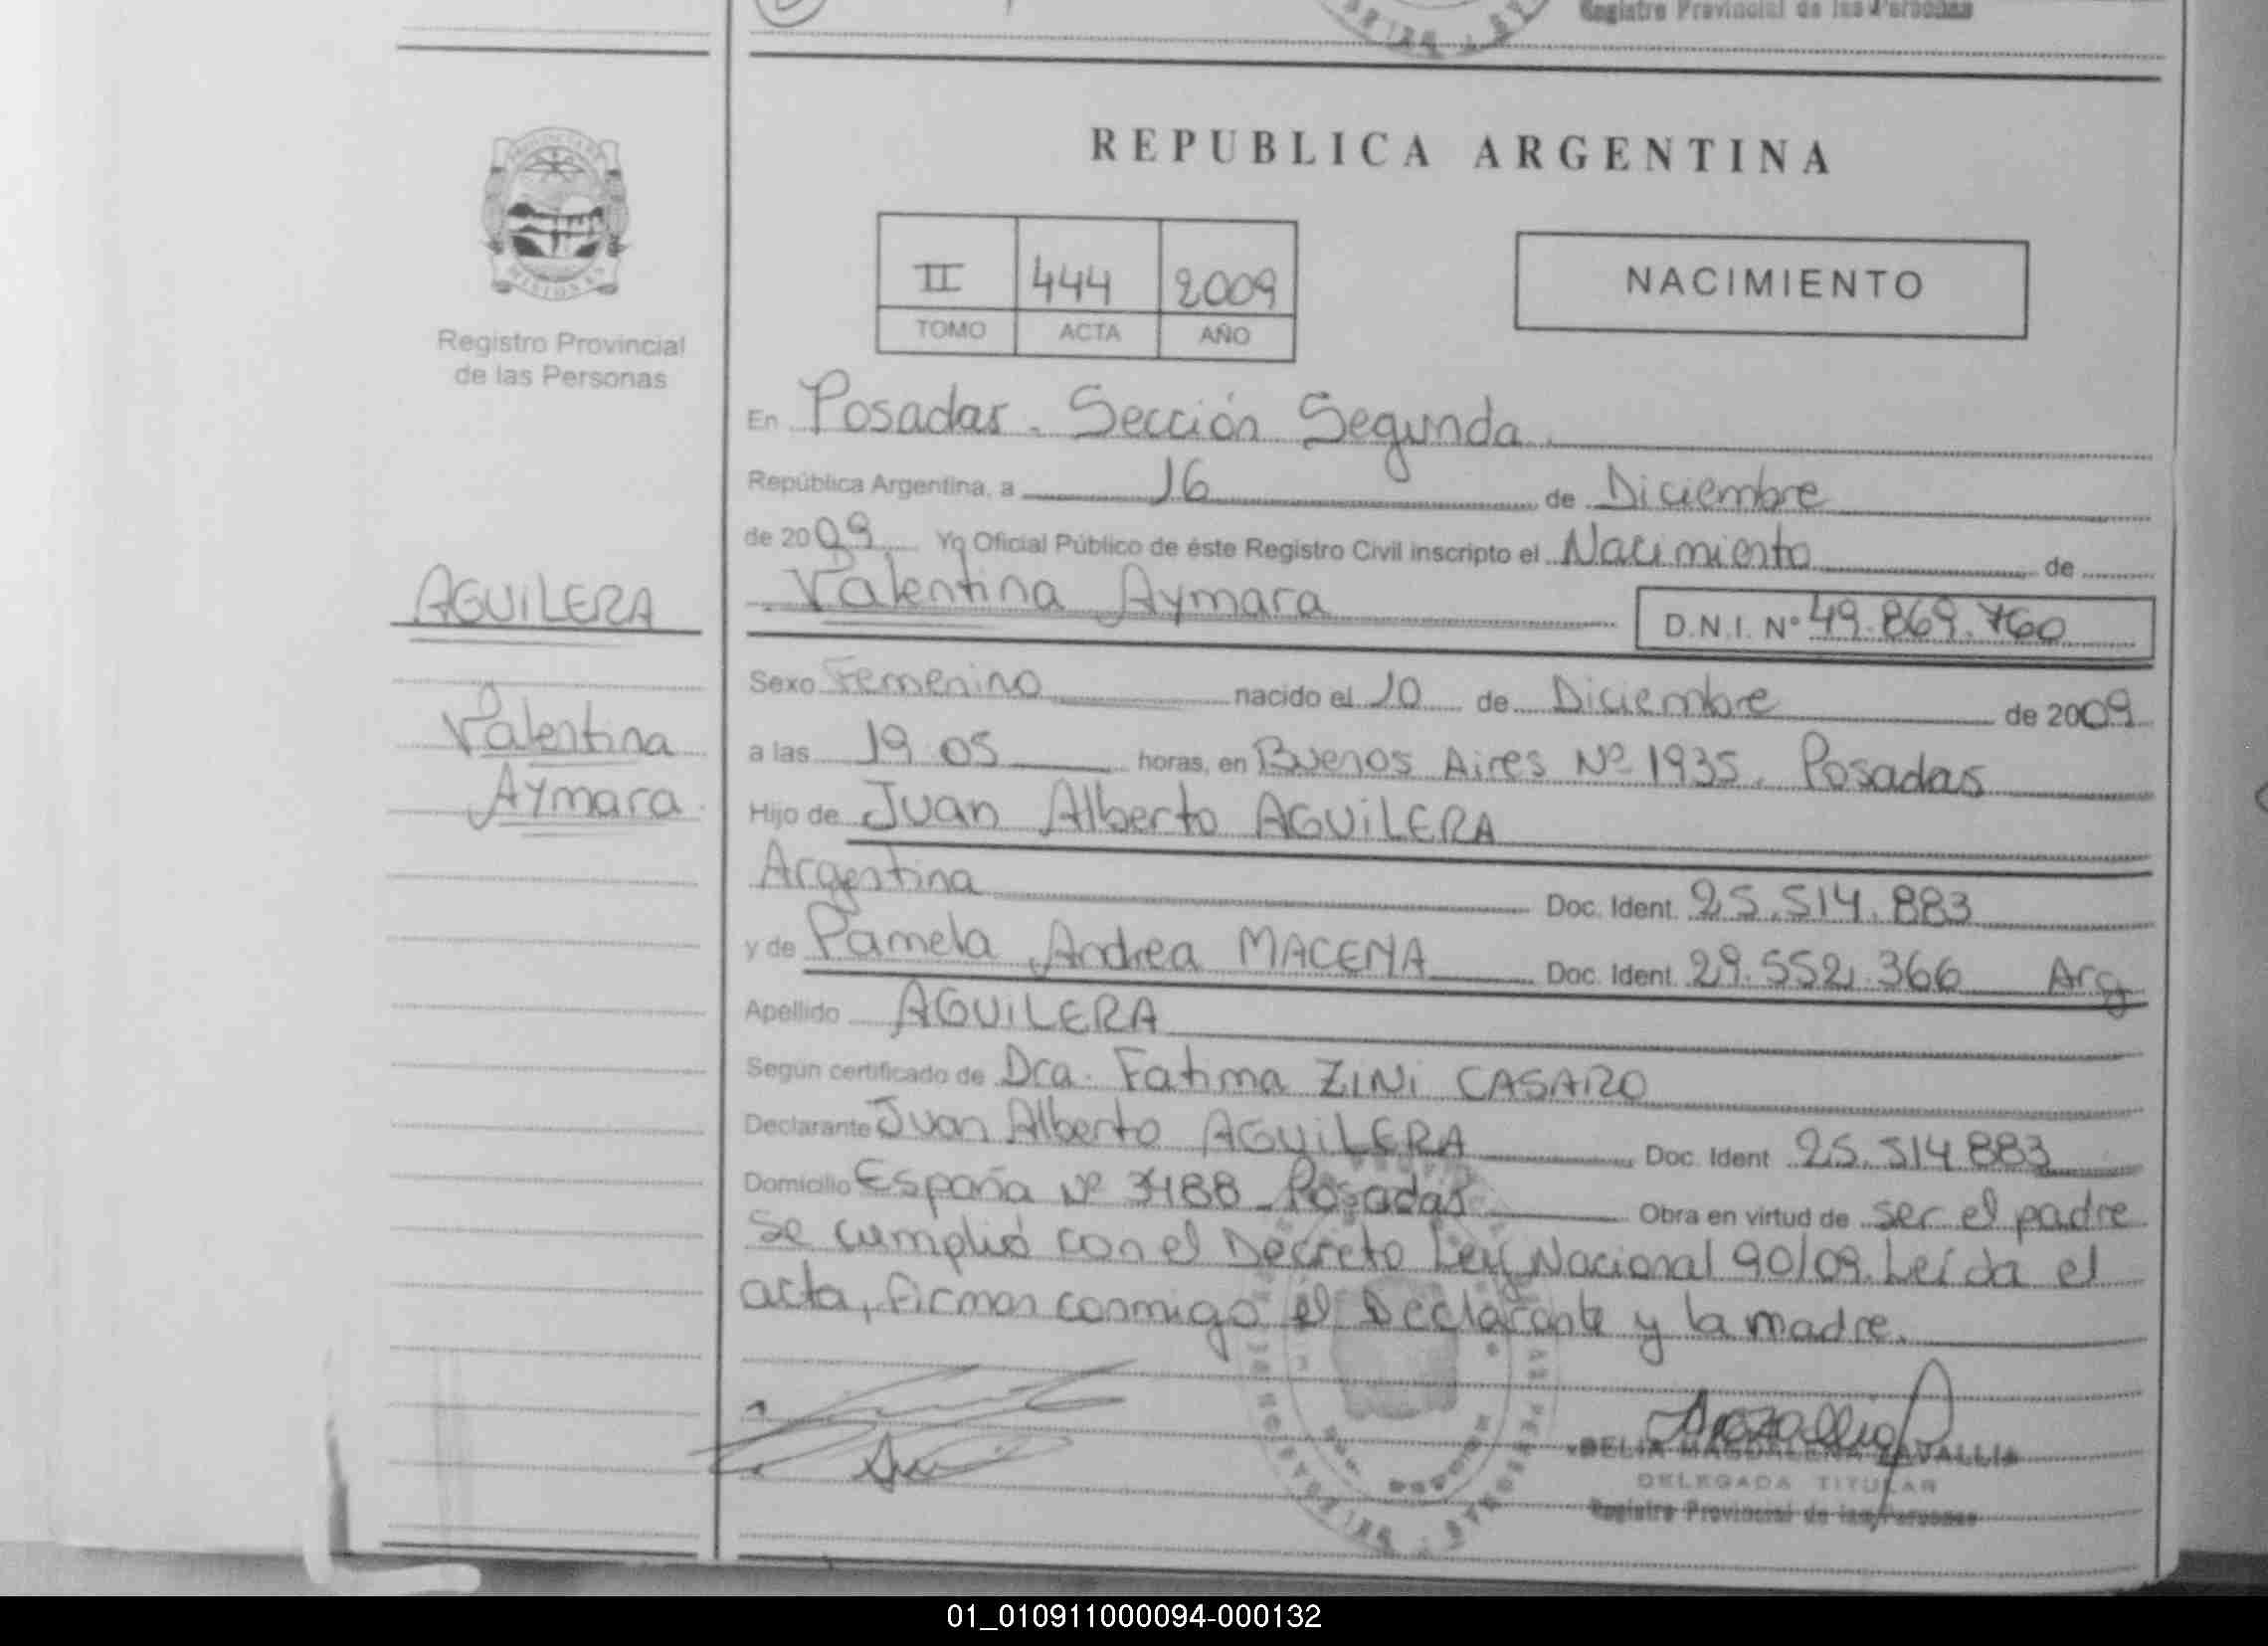 Registro Provincial de las Personas
REPUBLICA ARGENTINA
II 444 2009
TOMO ACTA AÑO
NACIMIENTO
Registro Provincial
de las Personas
AGUILERA
Valentina
Aymara
En Posadas. Sección Segunda
República Argentina, a 16 de Diciembre
de 2009 Yo Oficial Público de éste Registro Civil inscripto el Nacimiento de
Valentina Aymara D.N.I. Nº 49.869.760
Sexo Femenino nacido el 10 de Diciembre de 2009
a las 19.05 horas, en Buenos Aires Nº 1935. Posadas
Hijo de Juan Alberto AGUILERA
Argentina Doc. Ident. 25.514.883
y de Pamela Andrea MACENA Doc. Ident. 29.552.366 Arg
Apellido AGUILERA
Según certificado de Dra. Fatima ZINI CASARO
Declarante Juan Alberto AGUILERA Doc. Ident 25.514.883
Domicilio España Nº Posadas Obra en virtud de ser el padre
Se cumplió con el Decreto Ley Nacional 90/09. Leída el
acta, firman conmigo el Declarante y la madre.
DELIA MAGDALENA ZAVALLIA
DELEGADA TITULAR
Registro Provincial de las Personas
01_010911000094-000132